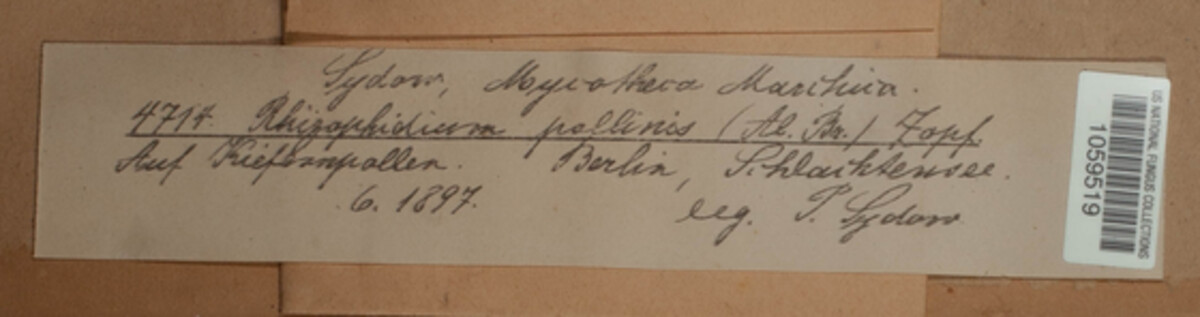 Sydow, Mycotheca Marchica.
4714. Rhizophidium pollinis (Al. Br.) Zopf.
Auf Kiefernpollen. Berlin, Schlachtensee.
6. 1897. leg. P. Sydow
US NATIONAL FUNGUS COLLECTIONS
1059519